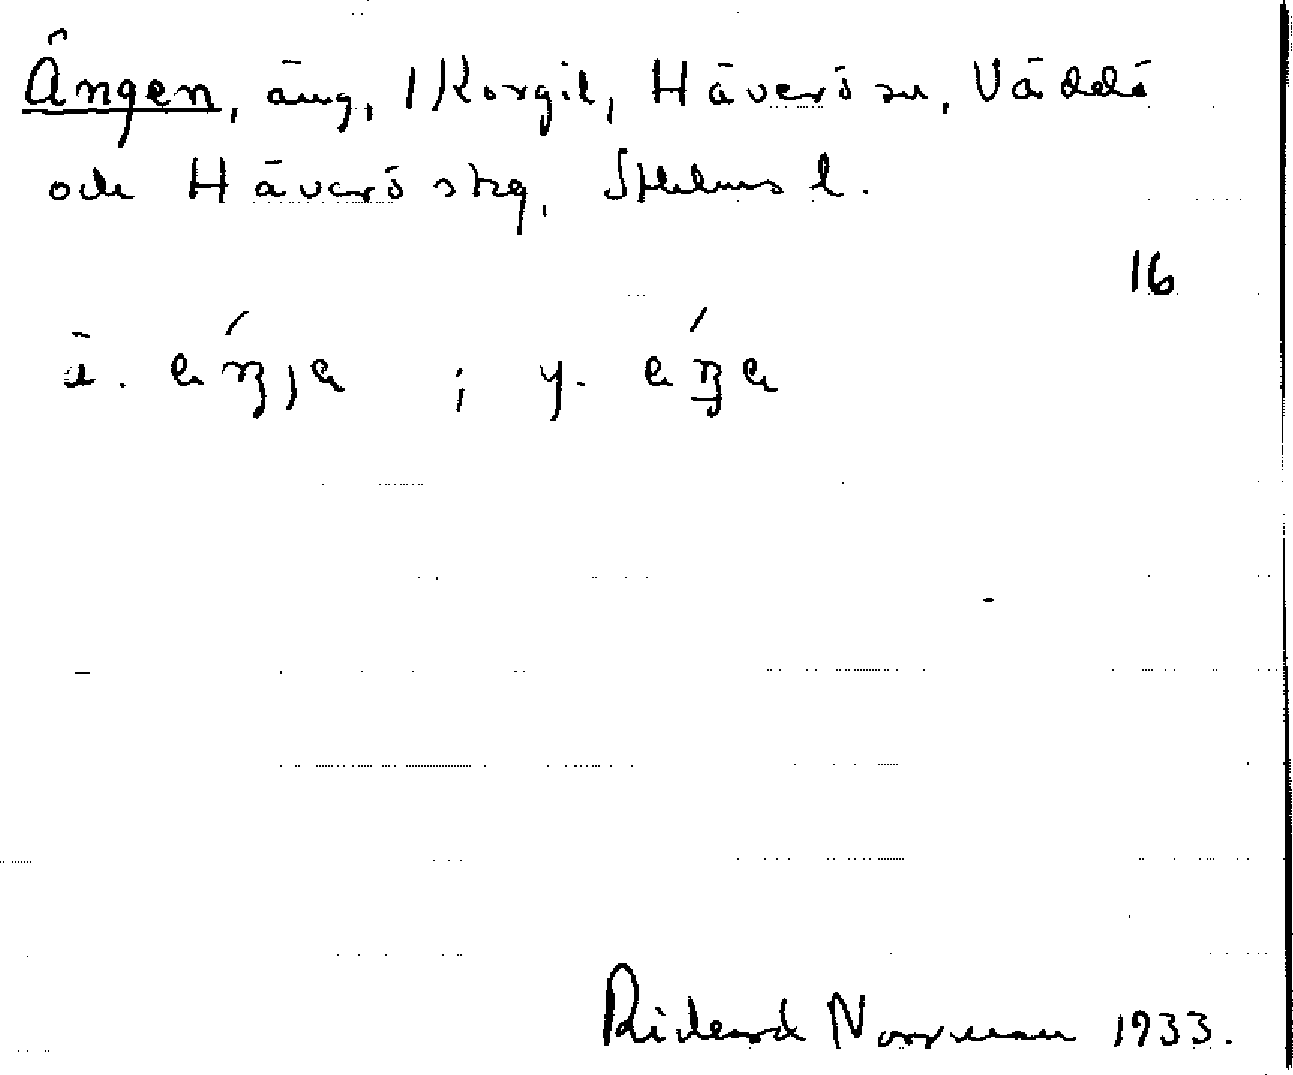 Ängen, äng, 1 Korgil, Häverö sn, Väddö
och Häverö skg, Sthlms l.
16
ä.
; y.
Rickard Norrman 1933.